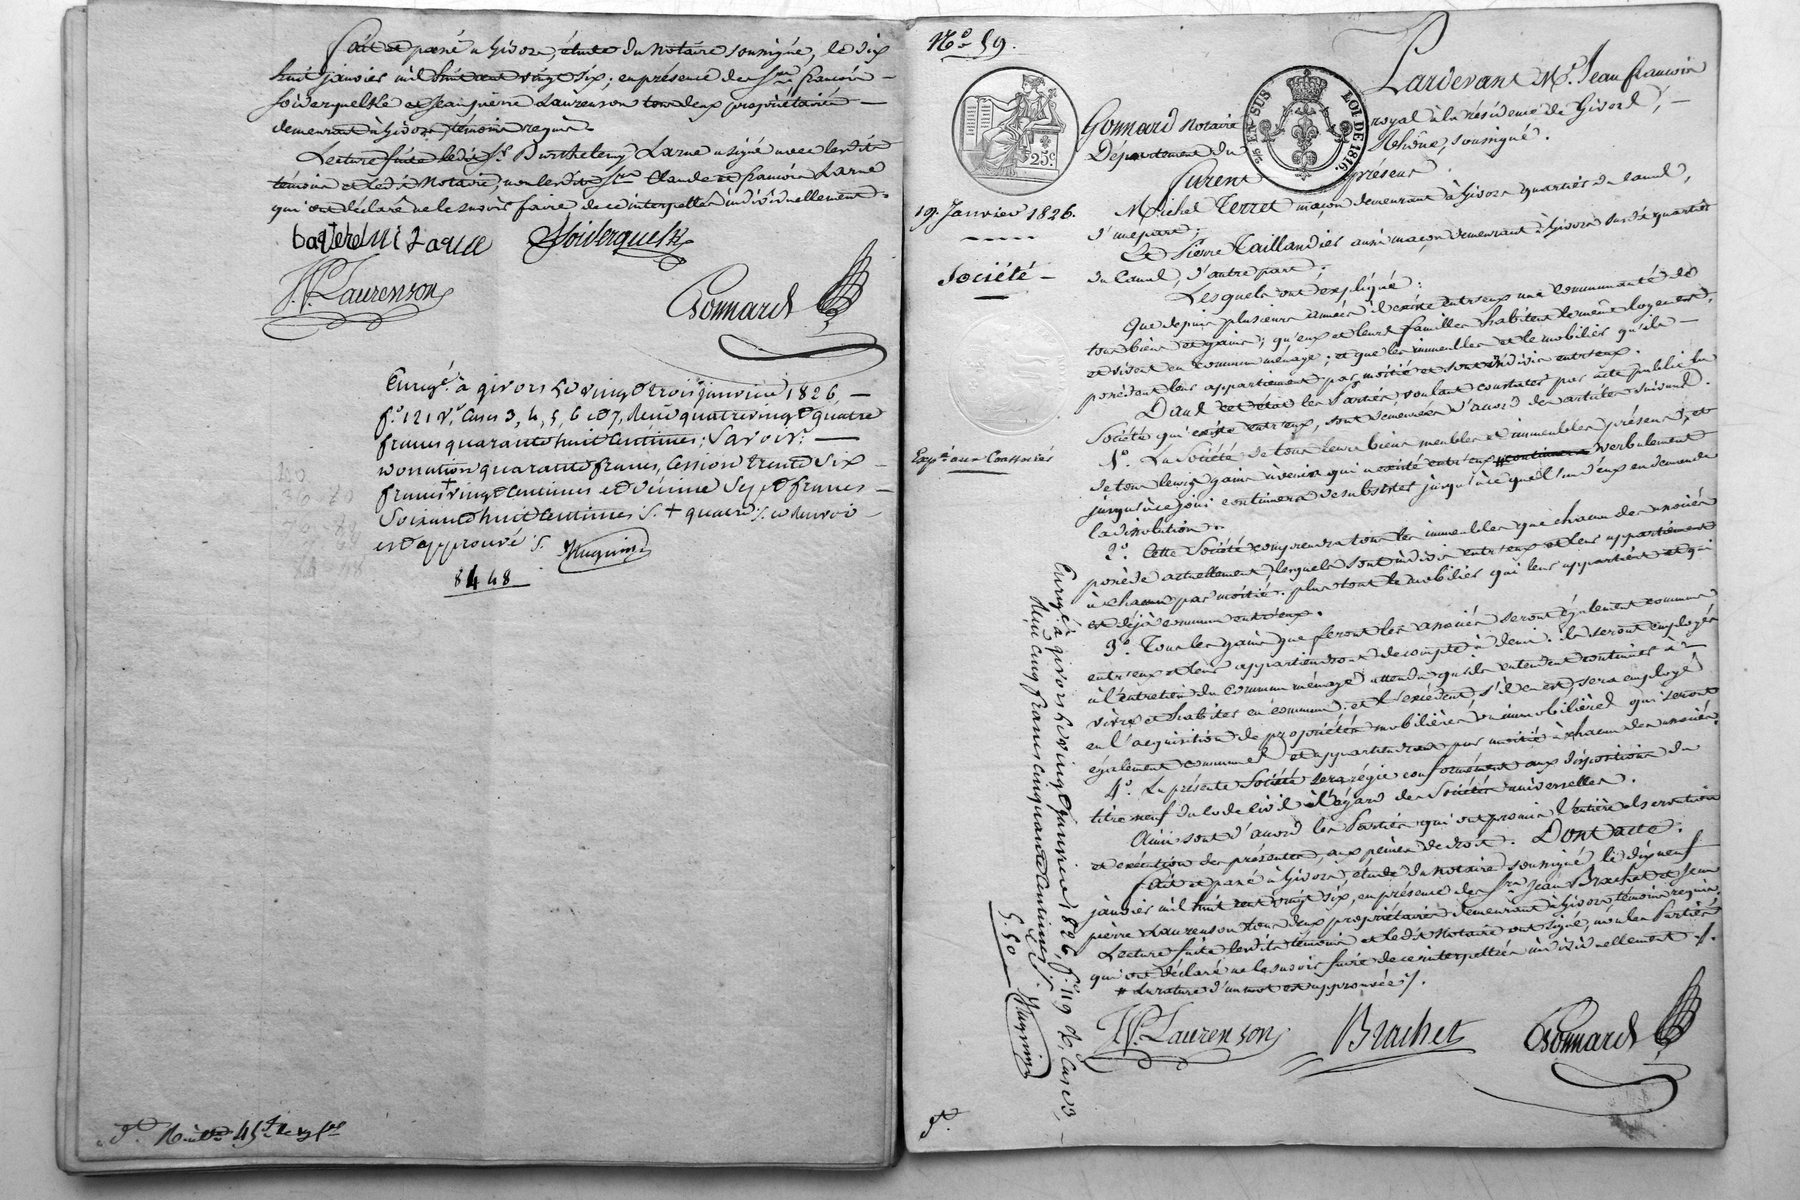 fait et passé à Givors, étude du Notaire soussigné, le dix
huit janvier mil huit cent vingt six; en présence des Srs. françois
Soiderquelk et Jean pierre Laurenson tous deux propriétaires
demeurant à Givors, témoins requis.
Lecture faite ledit Sr. Barthelemy Larue a signé avec lesdits
témoins et ledit Notaire, non lesdits Srs. Claude et françois Larue
qui ont déclaré ne le savoir faire de ce interpellés individuellement.
Soiderquelk
J.P. Laurenson
Gonnard
Enregé. à givors le vingt trois janvier 1826,
fo. 121 vo. Cases 3, 4, 5, 6 et 7, Reçu quatre vingt quatre
francs quarante huit Centimes; Savoir:
Donation quarante francs, Cession trente six
francs + vingt Centimes et décime Sept francs
Soixante huit Centimes /. + quatre /. renvoi
est approuvé /. Hugnin
84 48
No. 59.
25c.
25 EN SUS
LOI DE 1816
19. Janvier 1826.
Société
Pardevant Me. Jean françois
Gonnard Notaire royal à la résidence de Givors,
Département du Rhône, soussigné.
Furent présens
Michel Terret maçon demeurant à Givors quartier du Canal,
d'une part;
Et Pierre Taillandier aussi maçon demeurant à Givors susdit quartier
du Canal, d'autre part.
Lesquels ont expliqué:
Que depuis plusieurs années il existe entr'eux une communauté de
tous biens et gains; qu'eux et leurs familles habitent le même logement,
et vivent en commun ménage; et que les immeubles et le mobilier qu'ils
possèdent leur appartiennent par moitié et sont indivis entr'eux.
Dans cet état les Parties voulant constater par acte public la
Société qui existe entr'eux, sont demeurées d'accord des articles suivans.
1o. La Société de tous leurs biens meubles et immeubles présens, et
de tous leurs gains à venir qui a existé entr'eux # verbalement
jusqu'à ce jour continuera de subsister jusqu'à ce que l'un d'eux en demande
la dissolution.
2o. Cette Société comprendra tous les immeubles que chacun des associés
possède actuellement, lesquels sont indivis entr'eux et leur appartiennent
à chacun par moitié. plus tout le mobilier qui leur appartient et qui
est déjà commun entr'eux.
3o. Tous les gains que feront les associés seront également communs
entr'eux et leur appartiendront de compte à demi: ils seront employés
à l'entretien du commun ménage attendu qu'ils entendent continuer à
vivre et habiter en commun: et l'excédent, s'il en est, sera employé
en l'acquisition de propriétés mobilières ou immobilières qui seront
également communes et appartiendront par moitié à chacun des associés.
4o. La présente Société sera régie conformément aux dispositions du
titre neuf du Code Civil à l'égard des Sociétés universelles.
Ainsi sont d'accord les Parties qui ont promis l'entière observation
et exécution des présentes, aux peines de droit. Dont acte:
Fait et passé à Givors, étude du Notaire soussigné, le dix neuf
janvier mil huit cent vingt six, en présence des Srs. Jean Brachet et Jean
pierre Laurenson tous deux propriétaires demeurant à Givors témoins requis.
Lecture faite lesdits témoins et ledit Notaire ont signé, non les Parties
qui ont déclaré ne le savoir faire de ce interpellés individuellement /.
# La rature d'un mot est approuvée /.
J.P. Laurenson Brachet Gonnard
Enregé. à givors le vingt janvier 1826, fo. 119 Ro. Cases 3,
Reçu cinq francs cinquante Centimes /.
5. 50 Hugnin